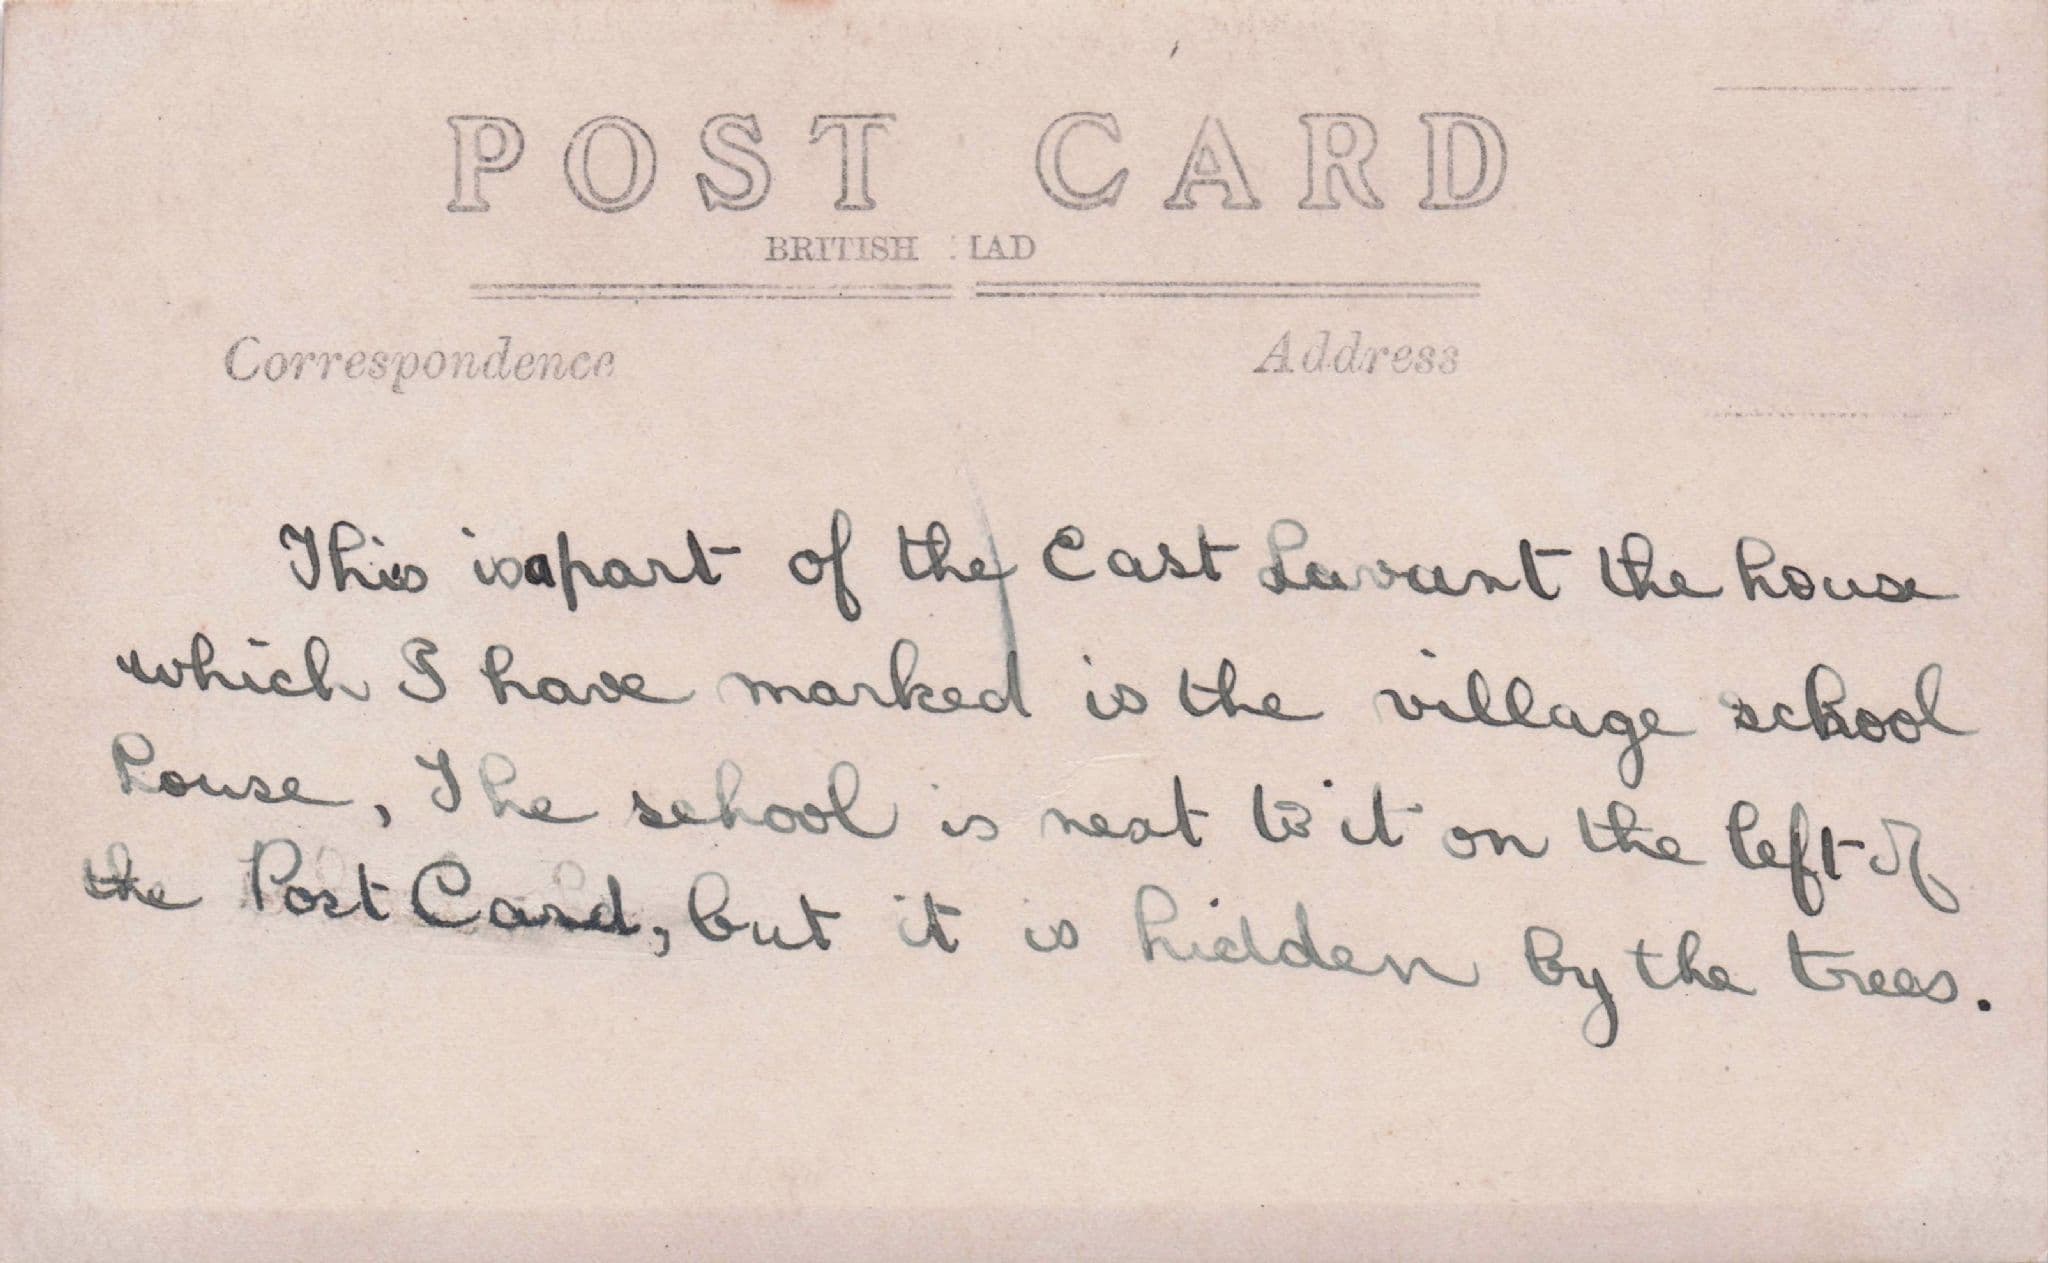 POST CARD
BRITISH MAD
Correspondence
Address
This is a part of the East Lavant the house
which I have marked is the village school
house, The school is next to it on the left of
the Post Card, but it is hidden by the trees.